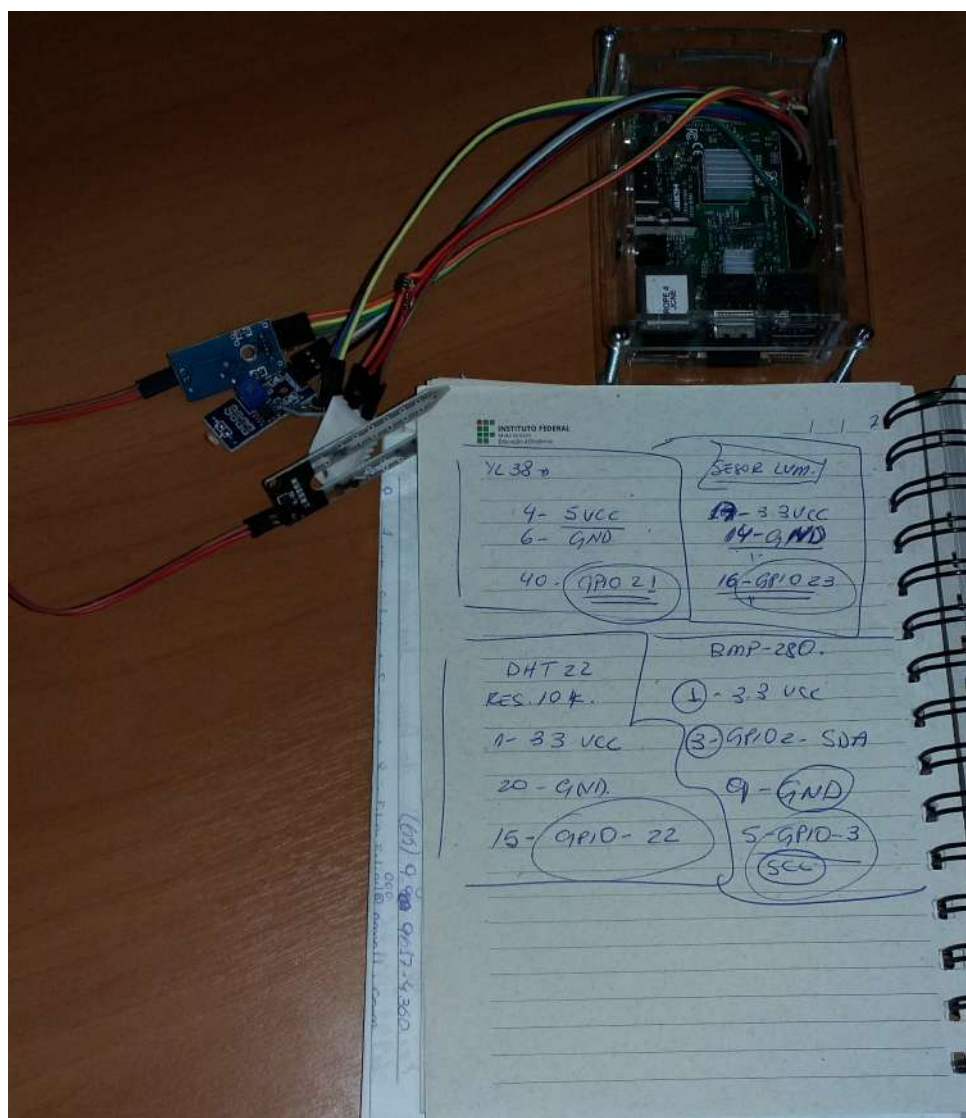 INSTITUTO FEDERAL
YL 38
4- 5VCC
6- GND
40. GPIO 21
SESOR LUM.
17-3.3VCC
14-GND
16-GPIO 23
DHT 22
RES. 10 K.
1- 33 VCC
20 - GND.
15- GPIO - 22
BMP-280.
1 - 3.3 VCC
3-GPIO2-SDA
9 - GND
5-GPIO-3
SCL
HDMI
FC CE